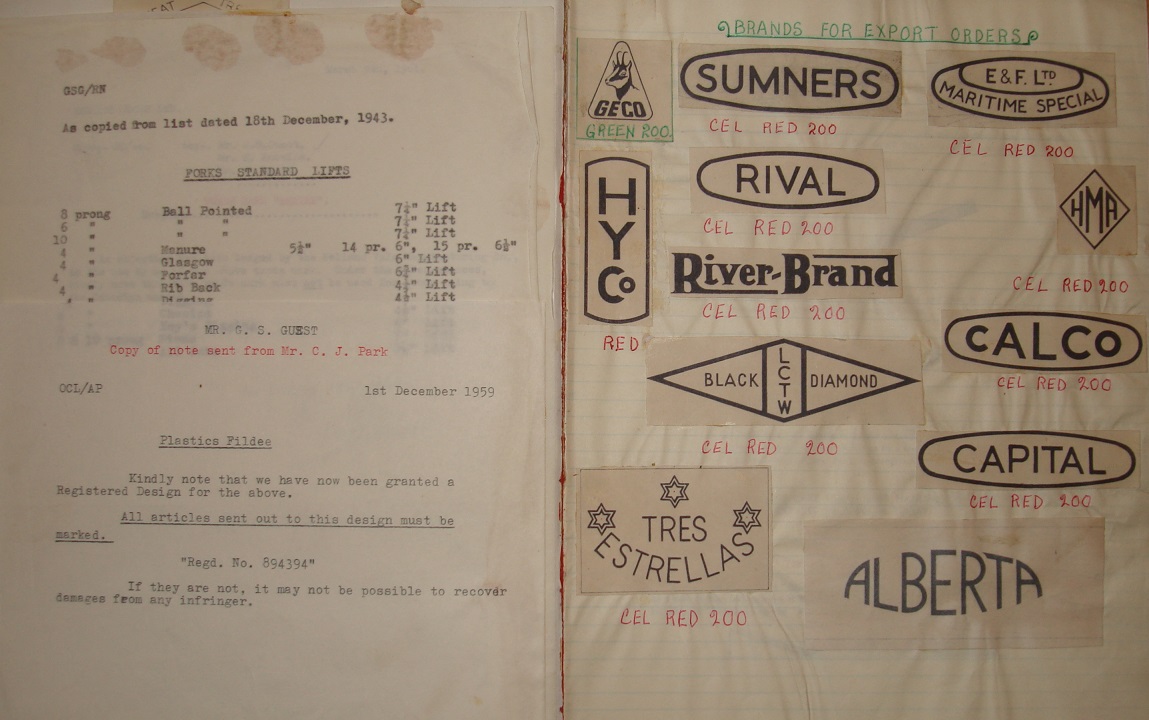 GSG/HN
As copied from list dated 18th December, 1943.
FORKS STANDARD LIFTS
8 prong Ball Pointed 7¼" Lift
6 " " " 7¼" Lift
10 " " " 7¼" Lift
4 " Manure 5½" 14 pr. 6", 15 pr. 6½"
4 " Glasgow 6" Lift
4 " Forfar 6¾" Lift
4 " Rib Back 4½" Lift
" Digging 4½" Lift
MR. G. S. GUEST
Copy of note sent from Mr. C. J. Park
OCL/AP 1st December 1959
Plastics Fildee
Kindly note that we have now been granted a
Registered Design for the above.
All articles sent out to this design must be
marked.
"Regd. No. 894394"
If they are not, it may not be possible to recover
damages from any infringer.
BRANDS FOR EXPORT ORDERS
GECO
GREEN 200.
SUMNERS
CEL RED 200
E & F. LTD
MARITIME SPECIAL
CEL RED 200
HYCo
RED
RIVAL
CEL RED 200
HMA
CEL RED 200
River-Brand
CEL RED 200
CALCO
CEL RED 200
BLACK LCTW DIAMOND
CEL RED 200
CAPITAL
CEL RED 200
TRES
ESTRELLAS
CEL RED 200
ALBERTA